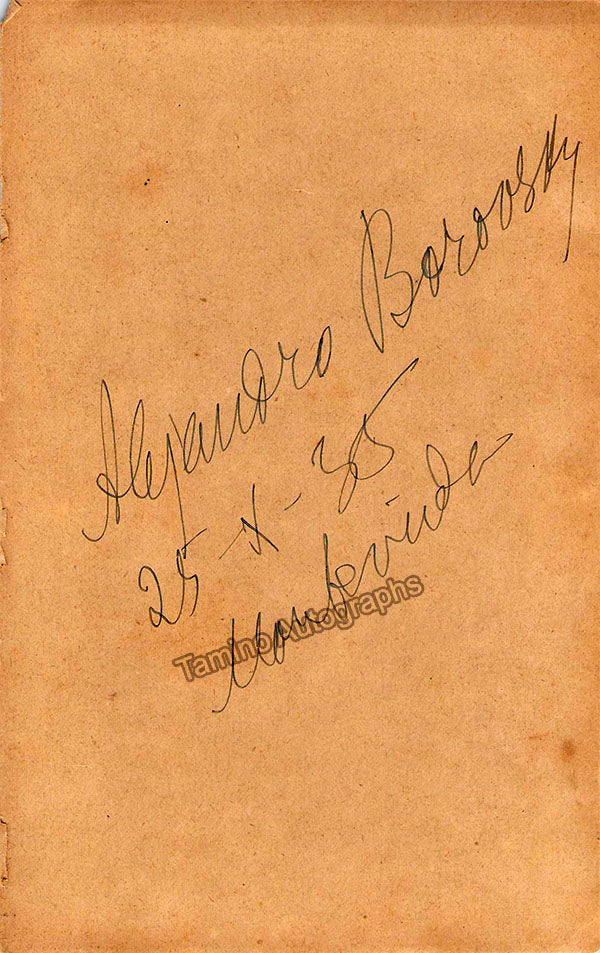 Alejandro Borovsky
25-X-35
Montevideo
Tamino Autographs